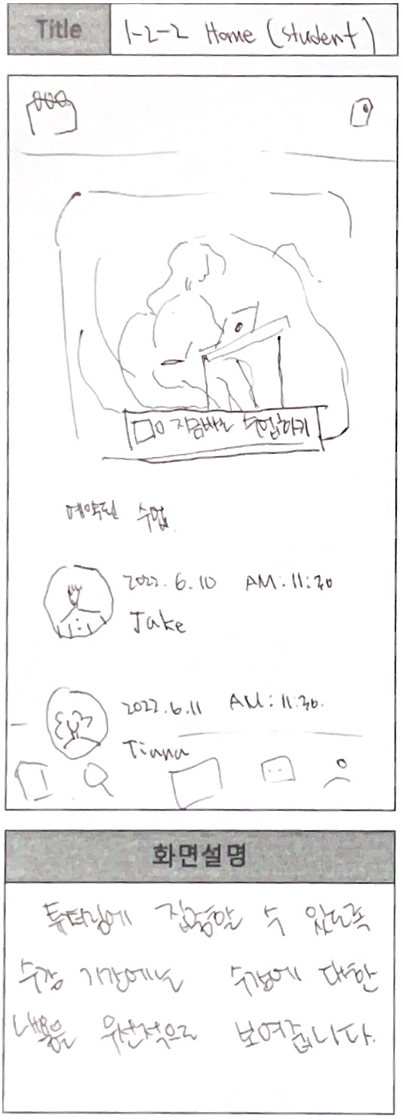 Title
1-2-2 Home (student)
지금바로 수업하기
예약된 수업
2022.6.10 AM:11:30
Jake
2022.6.11 AM:11:30.
Tiana
화면설명
튜터링에 집중할 수 있도록
수강 기간에는 수강에 대한
내용을 우선적으로 보여줍니다.